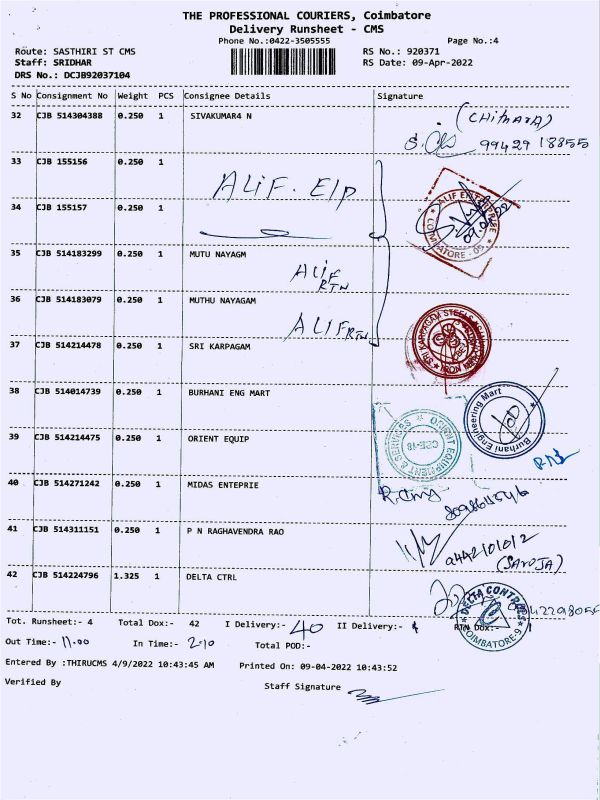 THE PROFESSIONAL COURIERS, Coimbatore
Delivery Runsheet - CMS
Phone No.:0422-3505555 Page No.:4
Route: SASTHIRI ST CMS RS No.: 920371
Staff: SRIDHAR RS Date: 09-Apr-2022
DRS No.: DCJB92037104
S No Consignment No Weight PCS Consignee Details Signature
32 CJB 514304388 0.250 1 SIVAKUMAR4 N (CHitHARA)
99429 18855
33 CJB 155156 0.250 1
ALIF. E/P
34 CJB 155157 0.250 1
ALIF ENTERPRISE
COIMBATORE - 05
35 CJB 514183299 0.250 1 MUTU NAYAGM
ALIF
RTN
36 CJB 514183079 0.250 1 MUTHU NAYAGAM
ALIF RTN
37 CJB 514214478 0.250 1 SRI KARPAGAM
SRI KARPAGAM STEELS
IRON
38 CJB 514014739 0.250 1 BURHANI ENG MART
Burhani Engineering Mart
39 CJB 514214475 0.250 1 ORIENT EQUIP
ORIENT EQUIPMENT & SERVICES
CBE-18
40 CJB 514271242 0.250 1 MIDAS ENTEPRIE
41 CJB 514311151 0.250 1 P N RAGHAVENDRA RAO
9442101012
(SAROJA)
42 CJB 514224796 1.325 1 DELTA CTRL
DELTA CONTROLS
COIMBATORE-9
Tot. Runsheet:- 4 Total Dox:- 42 I Delivery:- 40 II Delivery:- RTN Dox:-
Out Time:- 11.00 In Time:- 2.10 Total POD:-
Entered By :THIRUCMS 4/9/2022 10:43:45 AM Printed On: 09-04-2022 10:43:52
Verified By Staff Signature